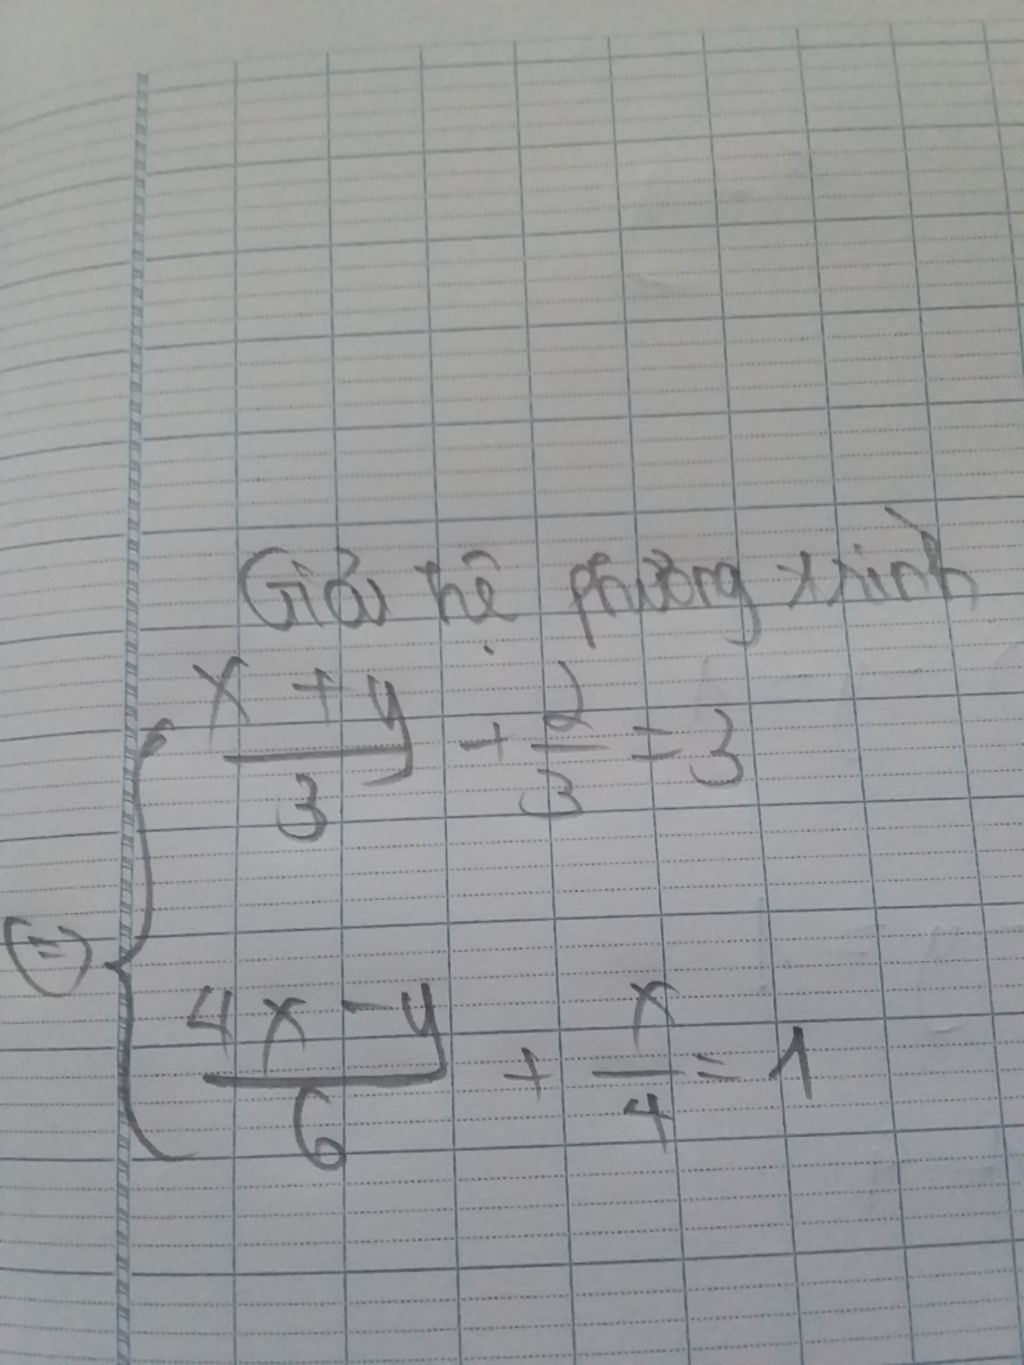 Giải hệ phương trình
x + y / 3 + 2 / 3 = 3
(=) { 4x - y / 6 + x / 4 = 1